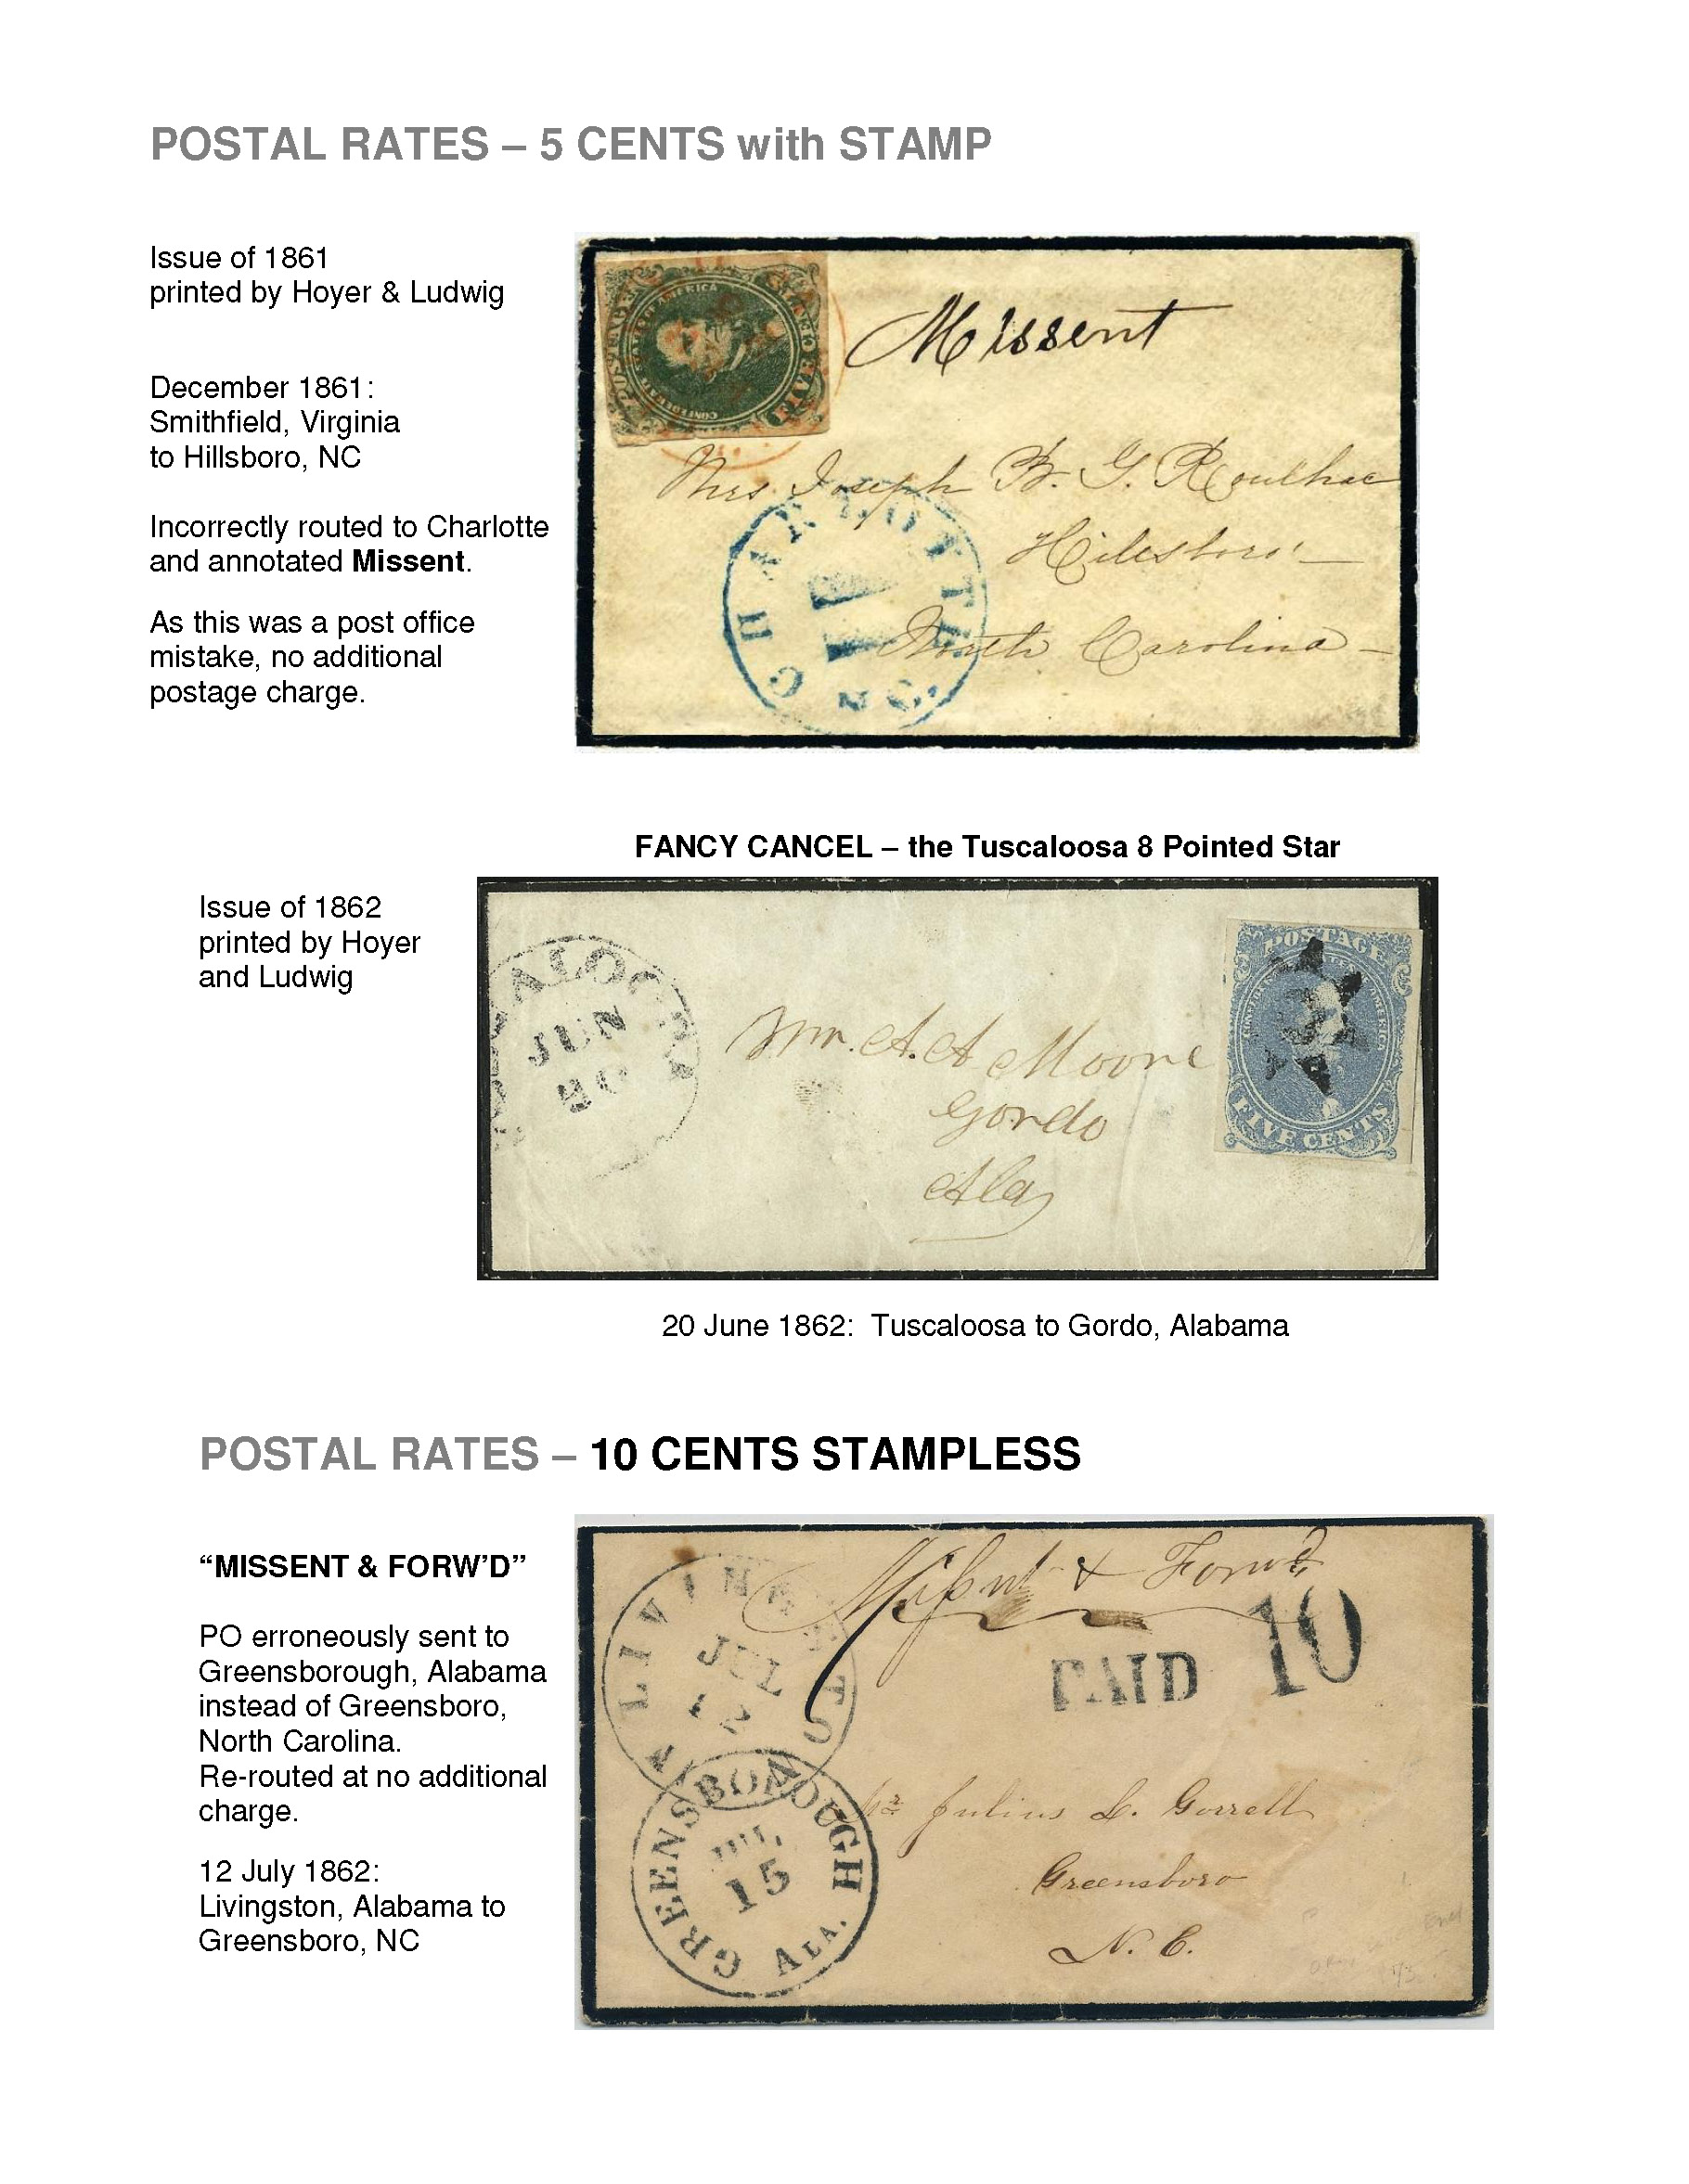 POSTAL RATES – 5 CENTS with STAMP
Issue of 1861
printed by Hoyer & Ludwig
December 1861:
Smithfield, Virginia
to Hillsboro, NC
Incorrectly routed to Charlotte
and annotated Missent.
As this was a post office
mistake, no additional
postage charge.
Missent
Mrs. Joseph B. G. Roulhac
Hillsboro'
North Carolina
CHARLOTTE
N.C.
FANCY CANCEL – the Tuscaloosa 8 Pointed Star
Issue of 1862
printed by Hoyer
and Ludwig
JUN
20
Mr. A. A Moore
Gordo
Ala
POSTAGE
FIVE CENTS
20 June 1862: Tuscaloosa to Gordo, Alabama
POSTAL RATES – 10 CENTS STAMPLESS
“MISSENT & FORW’D”
PO erroneously sent to
Greensborough, Alabama
instead of Greensboro,
North Carolina.
Re-routed at no additional
charge.
12 July 1862:
Livingston, Alabama to
Greensboro, NC
Missent & Forwd
PAID 10
LIVINGSTON
JUL
12
GREENSBOROUGH
JUL
15
ALA.
Mr Julius L. Gorrell
Greensboro
N. C.